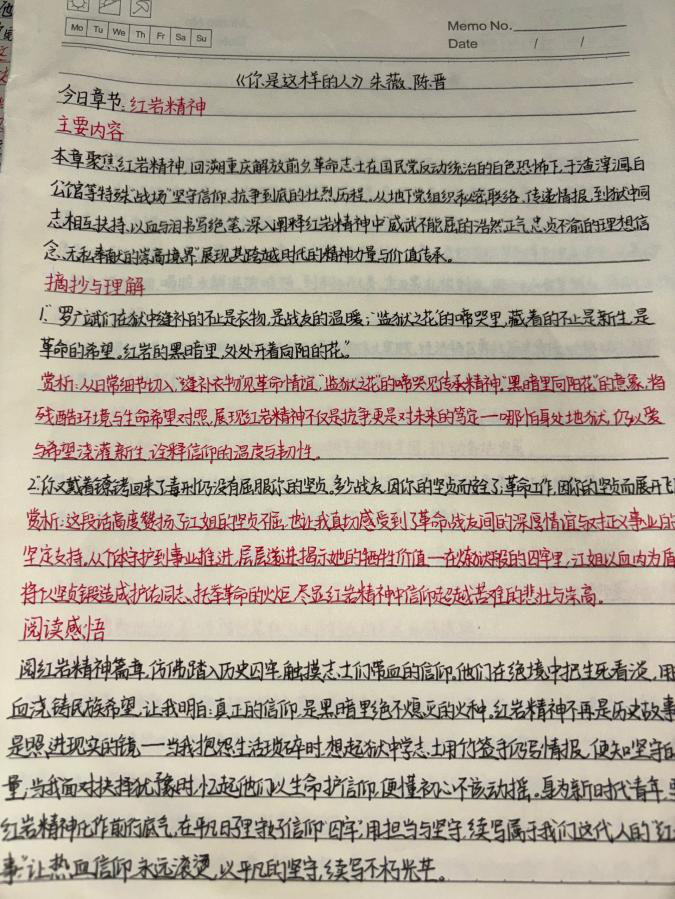 Mo Tu We Th Fr Sa Su
Memo No.
Date / /
《你是这样的人》朱薇、陈晋
今日章节：红岩精神
主要内容
本章聚焦红岩精神，回溯重庆解放前夕革命志士在国民党反动统治的白色恐怖下，于渣滓洞、白
公馆等特殊“战场”坚守信仰、抗争到底的壮烈历程。从地下党组织秘密联络、传递情报，到狱中同
志相互扶持、以血与泪书写绝笔，深入阐释红岩精神中“威武不能屈的浩然正气、忠贞不渝的理想信
念、无私奉献的崇高境界”展现其跨越时代的精神力量与价值传承。
摘抄与理解
1.“罗广斌们在狱中缝补的不止是衣物，是战友的温暖；‘监狱之花’的啼哭里，藏着的不止是新生，是
革命的希望。红岩的黑暗里，处处开着向阳的花。”
赏析：从日常细节切入，“缝补衣物”见革命情谊，“监狱之花”的啼哭见传承精神，“黑暗里向阳花”的意象，将
残酷环境与生命希望对照，展现红岩精神不仅是抗争更是对未来的笃定——哪怕身处地狱，仍以爱
与希望浇灌新生，诠释信仰的温度与韧性。
2.“你又戴着镣铐回来了，毒刑仍没有屈服你的坚贞。多少战友，因你的坚贞而安全了；革命工作，因你的坚贞而展开飞
赏析：这段话高度赞扬了江姐的坚贞不屈，也让我真切感受到了革命战友间的深厚情谊与对正义事业的
坚定支持。从个体守护到事业推进，层层递进揭示她的牺牲价值——在炼狱般的囚牢里，江姐以血肉为盾
将个人坚贞锻造成护佑同志、托举革命的火炬，尽显红岩精神中信仰超越苦难的悲壮与崇高。
阅读感悟
阅红岩精神篇章，仿佛踏入历史囚牢，触摸志士们带血的信仰。他们在绝境中把生死看淡，用
血浇铸民族希望，让我明白：真正的信仰，是黑暗里绝不熄灭的火种。红岩精神不再是历史故事
是照进现实的镜——当我抱怨生活琐碎时，想起狱中学志士用竹签守仍写情报，便知坚守的
量；当我面对抉择犹豫时，忆起他们以生命护信仰，便懂初心不该动摇。身为新时代青年，要
红岩精神化作前行底气，在平凡日子里守好信仰“囚牢”，用担当与坚守，续写属于我们这代人的“红
事”，让热血信仰，永远滚烫，以平凡的坚守，续写不朽光芒。